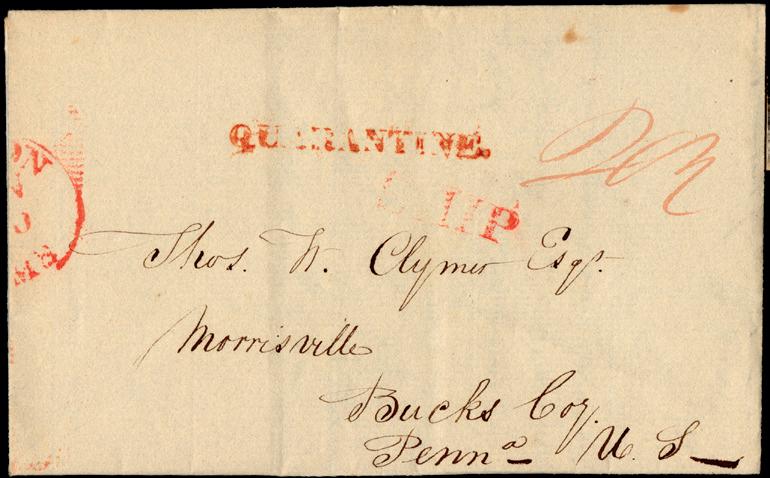 QUARANTINE.
SHIP
Thos. W. Clymer Esqr.
Morrisville
Bucks Coy.
Penna U. S